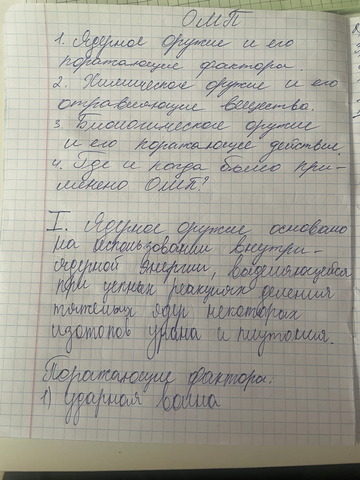 ОМП
1. Ядерное оружие и его
поражающие факторы.
2. Химическое оружие и его
отравляющие вещества.
3. Биологическое оружие
и его поражающее действие.
4. Где и когда было при-
менено ОМП?
I. Ядерное оружие основано
на использовании внутри-
ядерной энергии, выделяющейся
при цепных реакциях деления
тяжелых ядер некоторых
изотопов урана и плутония.
Поражающие факторы:
1) ударная волна